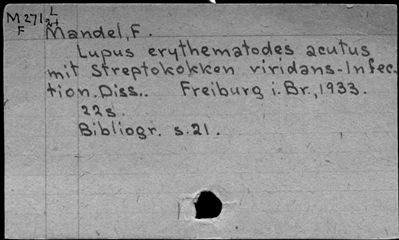 M271L
F
Mandel, F.
Lupus erythematodes acutus
mit Streptokokken viridans-Infec-
tion. Diss.. Freiburg i. Br., 1933.
22s.
Bibliogr. s.21.